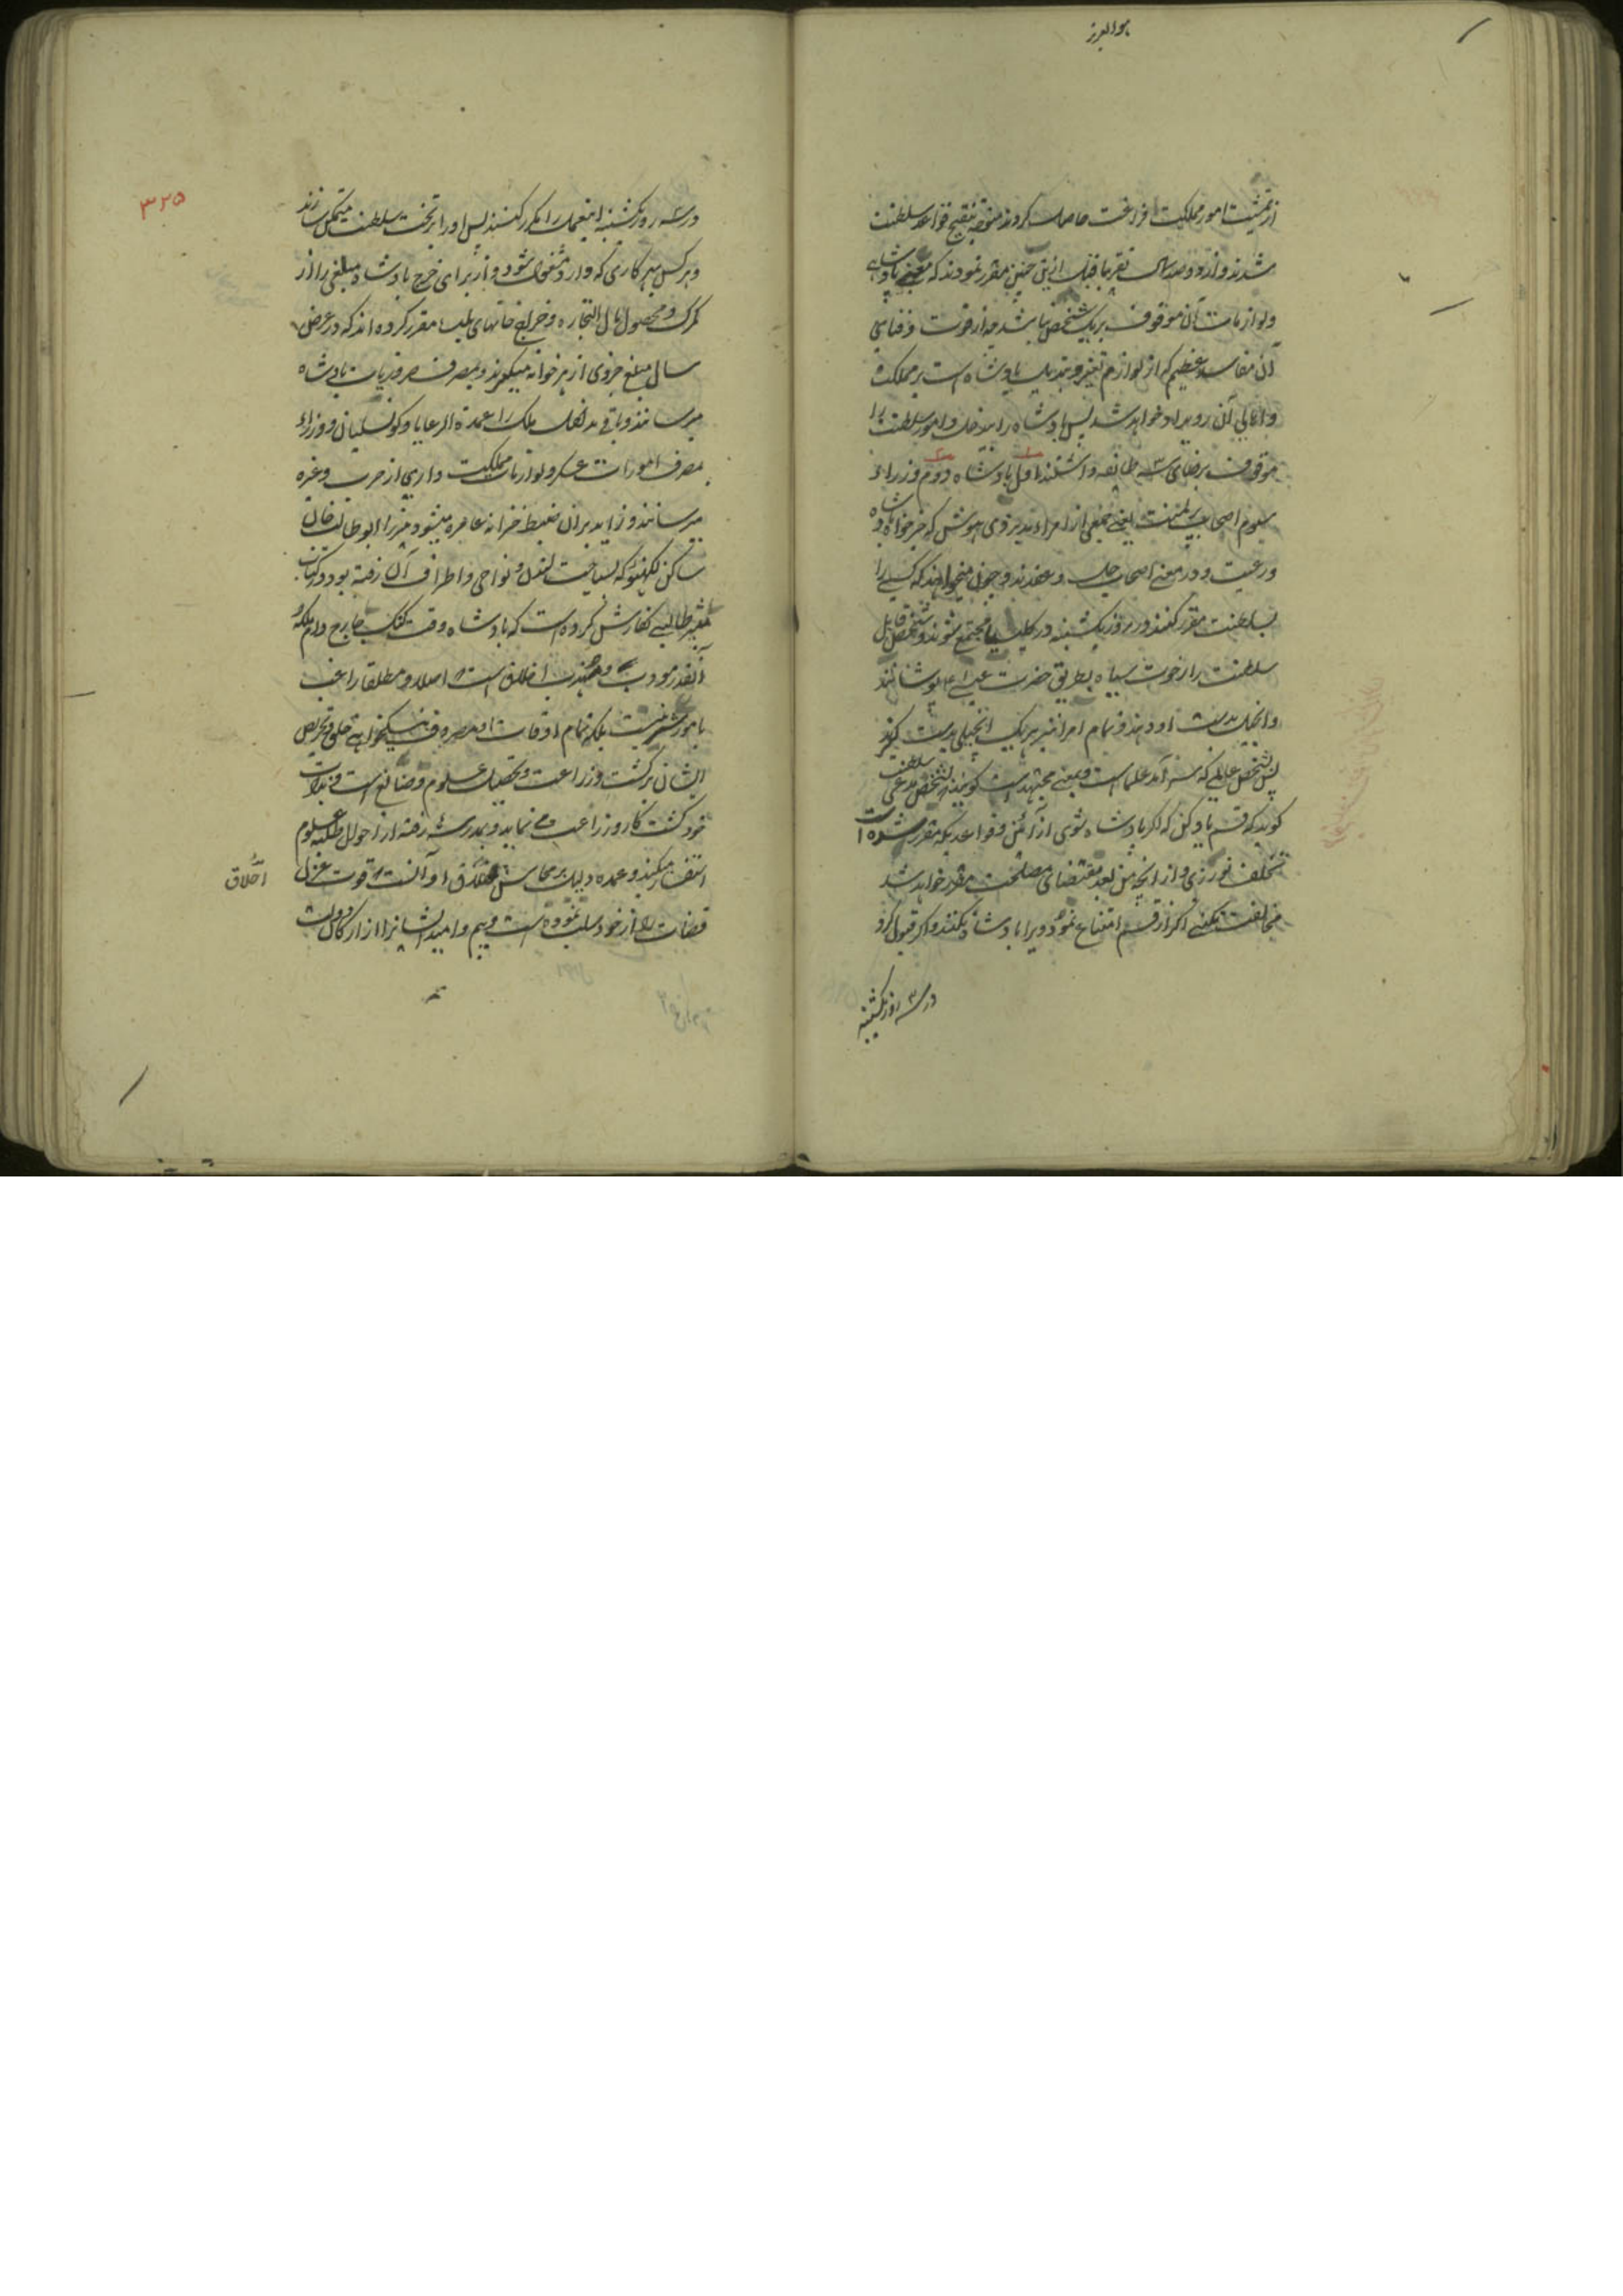 هو العزیز
از تمشیت امور مملکت فراغت حاصل کردند متوجه تنقیح قواعد سلطنت
شدند و از دو صد سال تقریبا قبل ازین چنین مقرر نمودند که معنی پادشاهی
و لوازمات آن موقوف بر یک شخص نباشد چه از فوت و فنای
آن مفاسد عظیم که از لوازم تغیر و تبدیل پادشاه است بر مملکت
و اهالی آن رویداد خواهد شد پس پادشاه را بیدخل و امور سلطنت را
موقوف برضای سه طائفه داشتند اول پادشاه دوم وزراء
سیوم اصحاب یعنی جمعی از امراء ذی هوش که خیرخواه پادشاه
و رعیت و در معنی اصحاب حل و عقدند و چون میخواهند که کسی را
بسلطنت مقرر کنند در روز یکشنبه در کلیسیا مجتمع شوند و شخص قابل
سلطنت را رخوت سیاه بطریق حضرت عیسی پوشانند
و انجیل بدست او دهند و تمام امرا نیز هر یک انجیلی بدست گیرند
پس شخص عالمی که سرآمد علما است و بمعنی مجتهد است گوید بشخص مدعی سلطنت
گوید که قسم یاد کن که اگر پادشاه شوی از آئین و قواعدیکه مقرر شده است
تخلف نورزی و از آنچه من بعد بمقتضای مصلحت مقرر خواهد شد
مخالفت نکنی اگر از قسم امتناع نمود ویرا پادشاه نکنند و اگر قبول کرد
در سه روز یکشنبه
۳۲۵
در سه روز یکشنبه اینعمل را مکرر کنند پس او را بر تخت سلطنت متمکن سازند
و هر کس بهر کاری که دارد مشغول شود و باز برای خرج پادشاه مبلغی را از
گمرک و محصول مال التجاره و خراج خانهای بلد مقرر کرده اند که در عرض
سال مبلغ جزوی از هر خوانه میگیرند و بمصرف ضروریات پادشاه
میرسانند و باقی مداخل ملک را عمدة الرعایا و کونسلیان و وزراء
بمصرف امورات عسکر و لوازمات مملکت داری از حرب و غیره
میرسانند و زاید بران ضبط خزانه عامره میشود میرزا ابو طالب خان
ساکن لکهنو که بسیاحت لندن و نواحی و اطراف آن رفته بود در کتاب
مسیر طالبی گفارش کرده است که پادشاه وقت کنک جارج دام ملکه
آنقدر مودب و مهذب اخلاق است که اصلا و مطلقا راغب
بامور شر نیست بلکه تمام اوقات او مصروف نیکخواهی خلق و تحریص
ایشان بر کشت و زراعت و تحصیل علوم و صنایع است و بذات
خود کشت کار و زراعت می نماید و بمدرسه رفته از احوال طلبه علوم
استفسار میکند و عمده دلیل بر محاسن اخلاق او آنست که قوت عزل
قضات را از خود سلب نموده است و بیم و امید ایشانرا از ارکان دولت
اخلاق